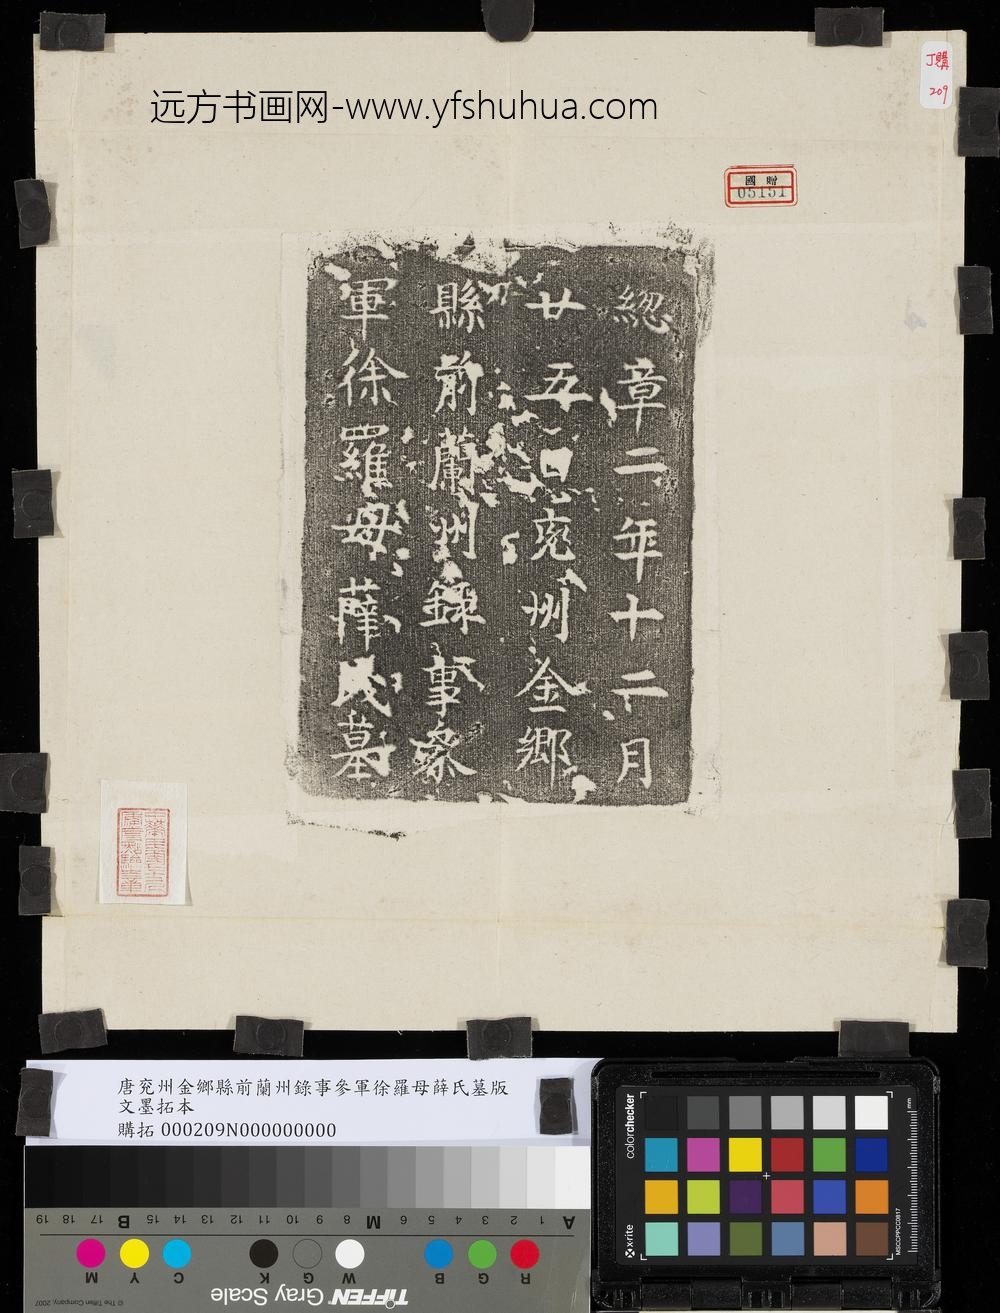 远方书画网-www.yfshuhua.com
購
209
國贈
05151
總章二年十二月
廿五日兖州金鄉
縣前蘭州錄事叅
軍徐羅母薛氏墓
唐兗州金鄉縣前蘭州錄事參軍徐羅母薛氏墓版
文墨拓本
購拓 000209N000000000
colorchecker
x-rite
mm
MSCCPPCC0817
19 18 17 B 15 14 13 12 11 10 9 8 M 6 5 4 3 2 1 A
M Y C K G W B G R
© The Tiffen Company, 2007
TIFFEN Gray Scale